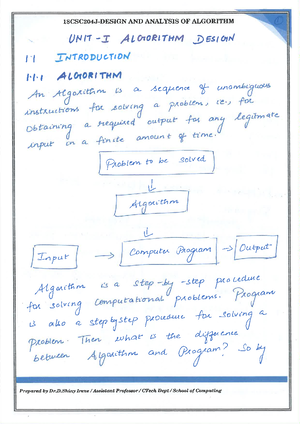 18CSC204J-DESIGN AND ANALYSIS OF ALGORITHM
UNIT-I ALGORITHM DESIGN
1.1 INTRODUCTION
1.1.1 ALGORITHM
An Algorithm is a sequence of unambiguous
instructions for solving a problem, ie., for
obtaining a required output for any legitimate
input in a finite amount of time.
Problem to be solved
Algorithm
Input
Computer Program
Output
Algorithm is a step-by-step procedure
for solving computational problems. Program
is also a step by step procedure for solving a
problem. Then what is the difference
between Algorithm and Program? So by
Prepared by Dr.D.Shiny Irene / Assistant Professor / CTech Dept / School of Computing